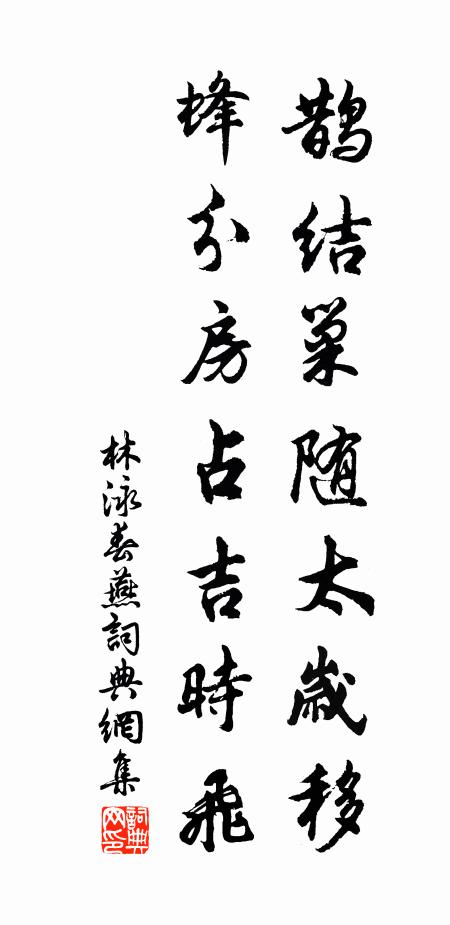 鹊结巢随太歲移
蜂分房占吉時飛
林泳春燕詞典網集
詞典网印